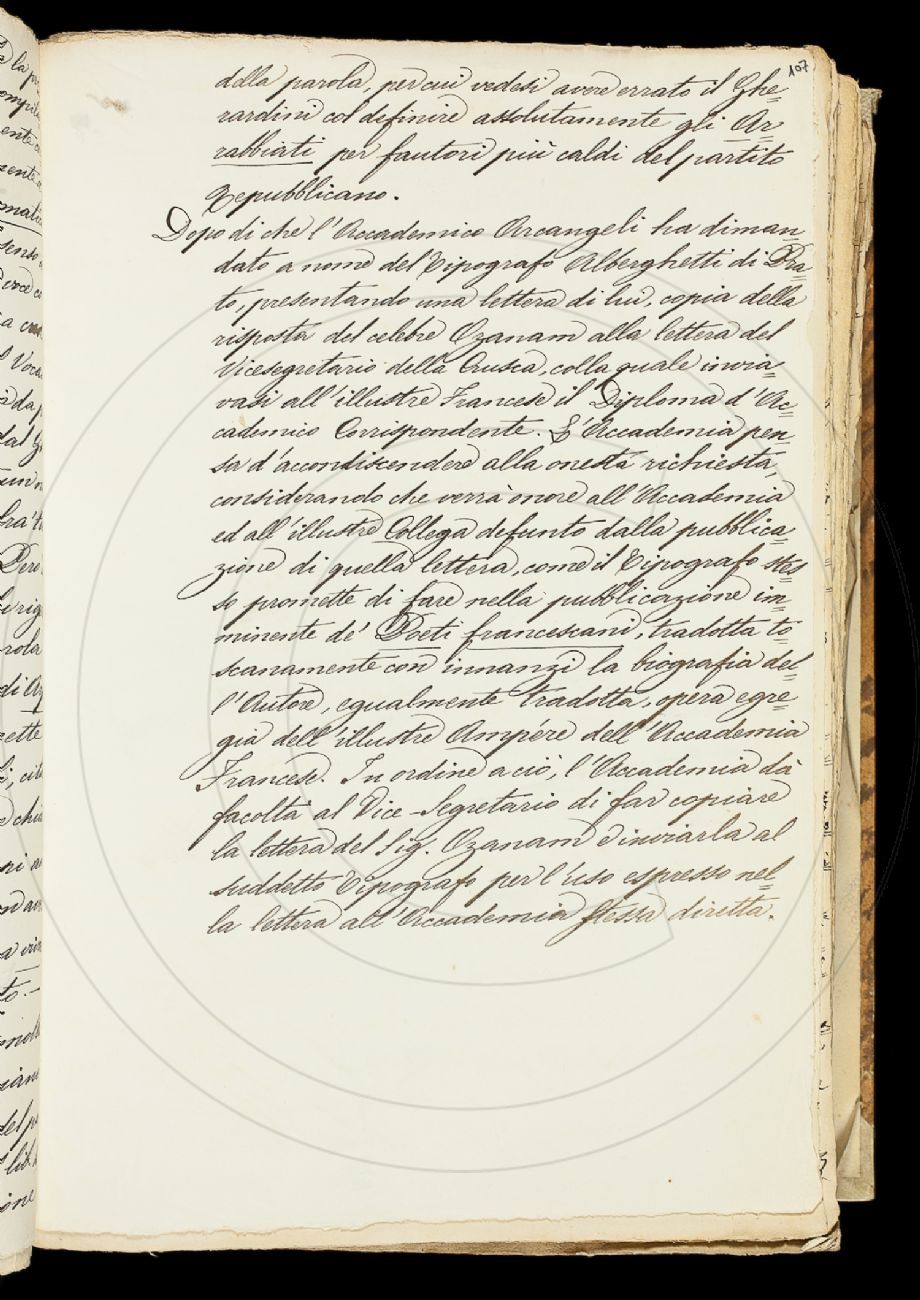 107
della parola, per cui vedesi avere errato il Ghe=
rardini col definire assolutamente gli Ar=
rabbiati per fautori più caldi del partito
Repubblicano.
Dopo di che l'Accademico Arcangeli ha diman=
dato a nome del Tipografo Alberghetti di Pra=
to, presentando una lettera di lui, copia della
risposta del celebre Ozanam alla lettera del
Vicesegretario della Crusca, colla quale invia=
vasi all'illustre Francese il Diploma d'Ac=
cademico Corrispondente. L'Accademia pen=
sa d'accondiscendere alla onesta richiesta,
considerando che verrà onore all'Accademia
ed all'illustre Collega defunto dalla pubblica=
zione di quella lettera, come il Tipografo stes=
so promette di fare nella pubblicazione im=
minente de' Poeti francescani, tradotta to=
scanamente con innanzi la biografia del=
l'Autore, egualmente tradotta, opera egre=
gia dell'illustre Ampére dell'Accademia
Francese. In ordine a ciò, l'Accademia dà
facoltà al Vice-Segretario di far copiare
la lettera del Sig. Ozanam e inviarla al
suddetto Tipografo per l'uso espresso nel=
la lettera all'Accademia stessa diretta.